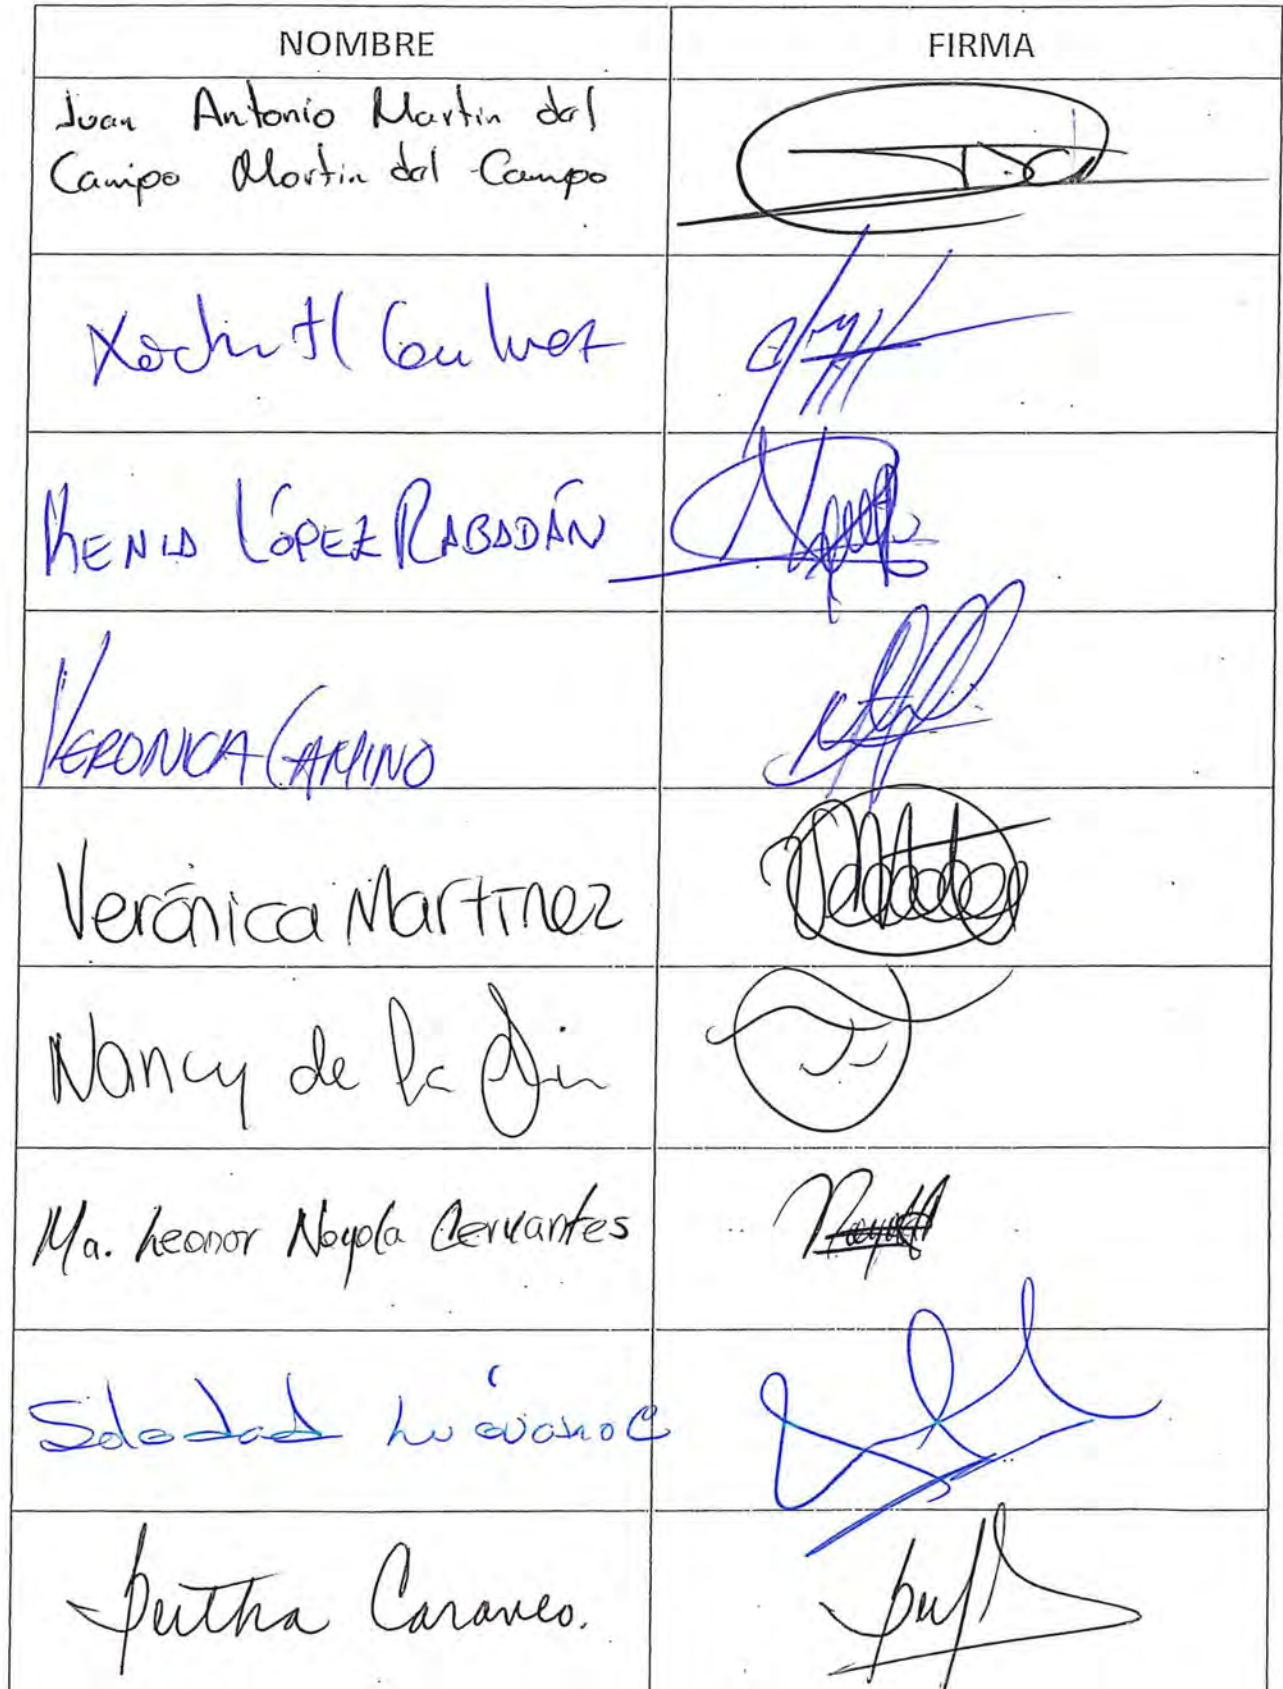 NOMBRE FIRMA
Juan Antonio Martin del
Campo Martin del Campo
Xochitl Galvez
KENIA LÓPEZ RABADÁN
VERONICA CAMINO
Verónica Martínez
Nancy de la
Ma. Leonor Noyola Cervantes
Soledad Luévano C
Bertha Caraveo.